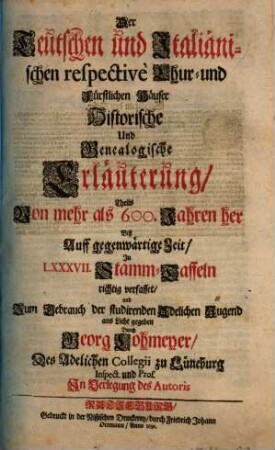 Der
Teutschen und Italiäni-
schen respectivè Chur- und
Fürstlichen Häuser
Historische
Und
Genealogische
Erläuterung/
Theils
Von mehr als 600. Jahren her
Biß
Auff gegenwärtige Zeit/
In
LXXXVII. Stamm-Taffeln
richtig verfasset/
und
Zum Gebrauch der studirenden Adelichen Jugend
ans Licht gegeben
Durch
Georg Lohmeyer/
Des Adelichen Collegii zu Lüneburg
Inspect. und Prof.
In Verlegung des Autoris
RATZEBURG/
Gedruckt in der Nißischen Druckerey/durch Friedrich Johann
Anno